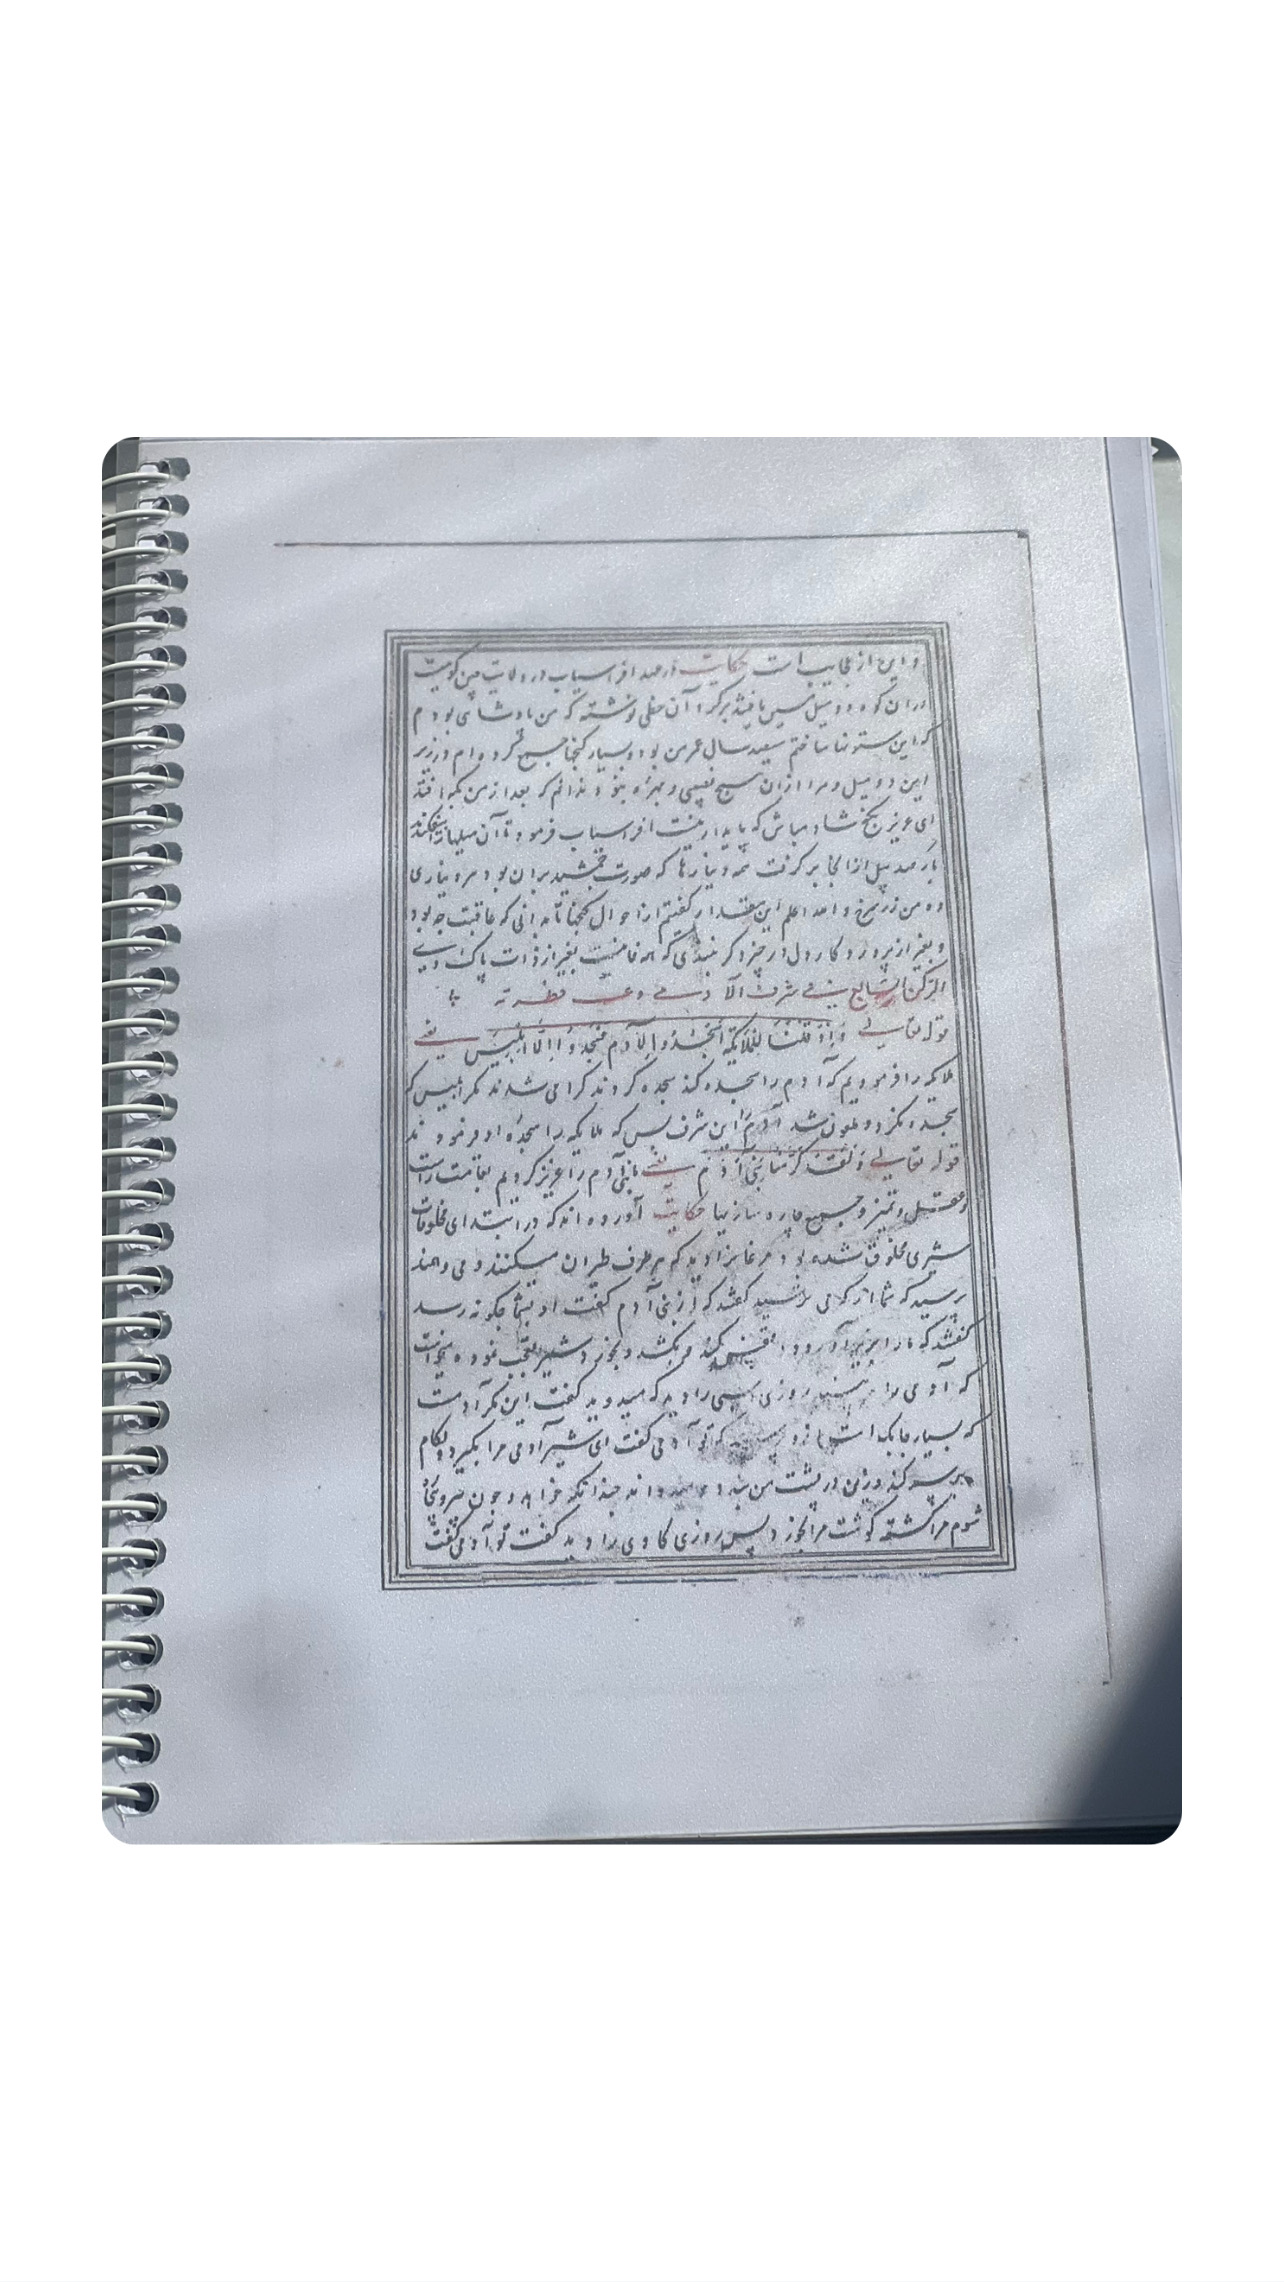 و این از عجایب است حکایت در عهد افراسیاب در ولایت چین کوهیست
در ان کوه دو میل مسین یافتند بر کرد آن خطی نوشته که من پادشاهی بودم
که این ستونها ساختم سیصد سال عمر من بود و بسیار کنجها جمع کرده ام و در زیر
این دو میل و مرا از ان هیچ نصیبی و بهره نبود و ندانم که بعد از من بکه افتد
ای عزیز بکنج شاد مباش که پایدار نیست افراسیاب فرمود تا آن میلها را بیفکندند
بار صد پیل از انجا بر کرفت همه دینارها که صورت جمشید بران بود هر دیناری
ده من زر سرخ و الله اعلم این مقدار کفتیم از احوال کنجها تا بدانی که عاقبت چه بود
و بغیر از پروردکار دل در چیز دکر نبندی که همه فانیست بغیر از ذات پاک وی
الرکن السابع فی شرف الآدمی و عجب فطرته
قوله تعالی وَاِذْ قُلْنَا لِلْمَلَائِکَةِ اسْجُدُوا لِآدَمَ فَسَجَدُوا اِلَّا اِبْلِیسَ یعنی
ملایکه را فرمودیم که آدم را سجده کنند سجده کردند کرامی شدند مکر ابلیس که
سجده نکرد و ملعون شد آدم را این شرف بس که ملایکه را سجدۀ او فرمودند
قوله تعالی وَلَقَدْ کَرَّمْنَا بَنِی آدَمَ یعنی ما بنی آدم را عزیز کردیم بقامت راست
و عقل و تمیز و جمیع چاره سازیها حکایت آورده اند که در ابتدای مخلوقات
شیری مخلوق شده بود مرغانرا دید که هر طرف طیران میکنند و می رمند
پرسید که شما از که می ترسید کفتند که از بنی آدم کفت او بشما چکونه رسد
کفتند که ما را بزیر آورد و در قفس کند و بکشد و بخورد شیر تعجب نموده میخواست
که آدمی را ببیند روزی اسبی را دید که میدوید کفت این مکر آدمست
که بسیار چابک است از و پرسید که تو آدمی کفت ای شیر آدمی مرا بکیرد و لکام
بر سر کند و زین در پشت من نهد و میدواند چندانکه خواهد و چون پیر و کهنه
شوم مرا کشته کوشت مرا بخورد پس روزی کاوی را دید کفت تو آدمی کفت